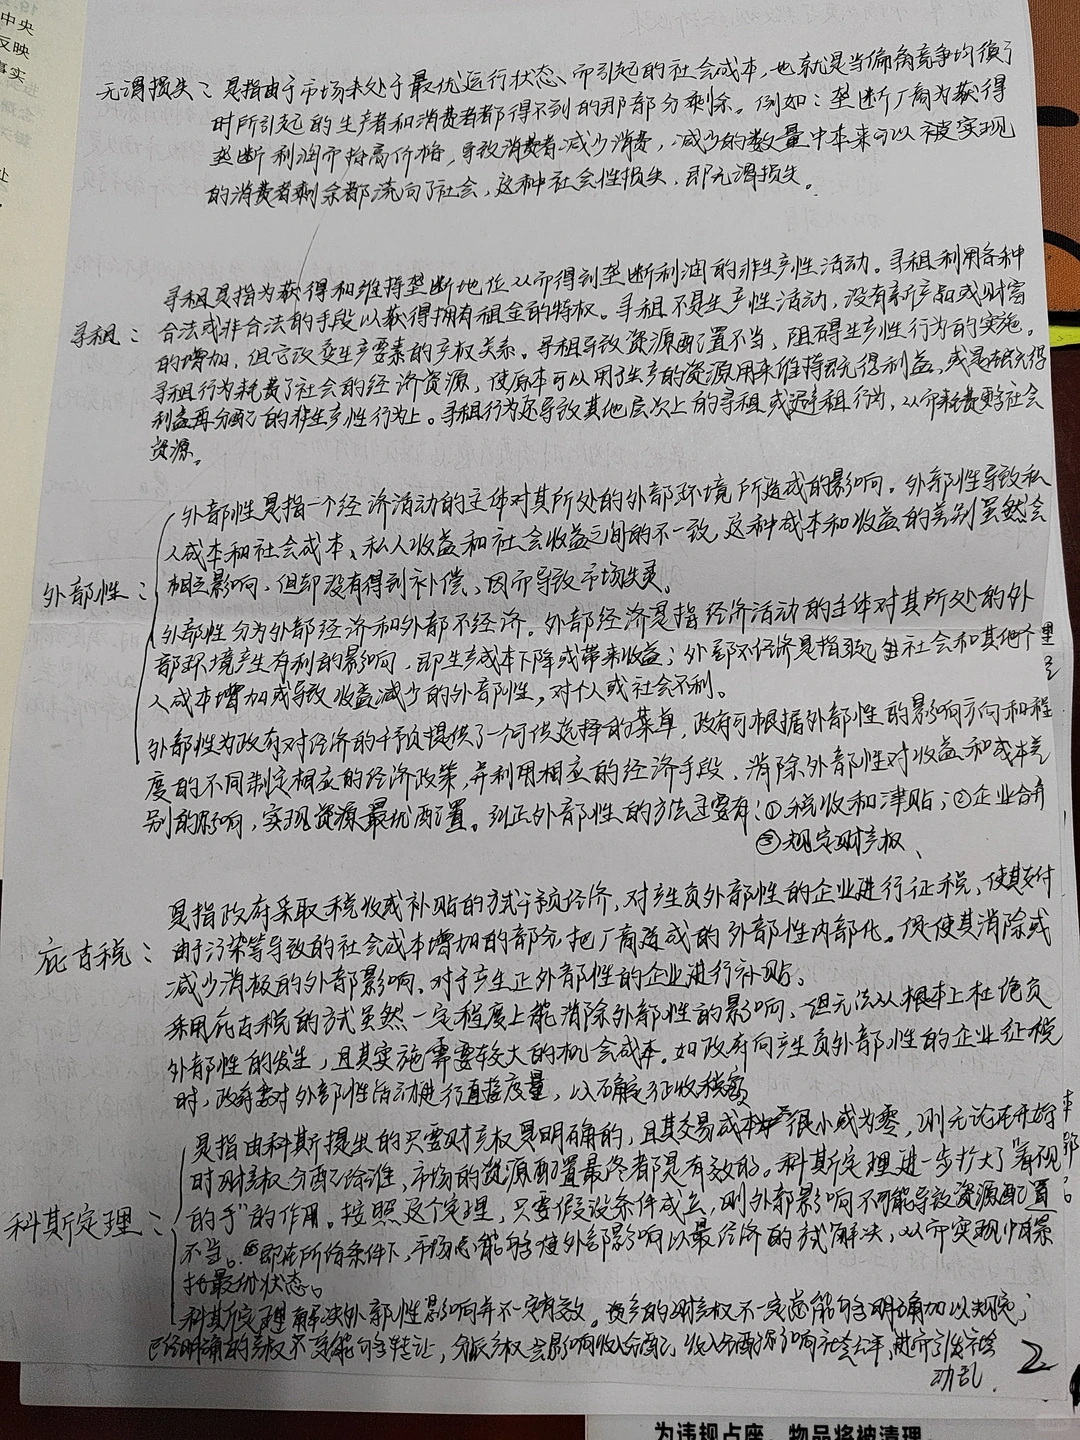 中央
反映
事实
无谓损失：是指由于市场未处于最优运行状态而引起的社会成本，也就是当偏离竞争均衡
时所引起的生产者和消费者都得不到的那部分剩余。例如：垄断厂商为获得
垄断利润而抬高价格，导致消费者减少消费，减少的数量中本来可以被实现
的消费者剩余都流向了社会，这种社会性损失，即无谓损失。
寻租是指为获得和维持垄断地位从而得到垄断利润的非生产性活动。寻租利用各种
寻租：合法或非合法的手段以获得拥有租金的特权。寻租不是生产性活动，没有新产品或财富
的增加，但它改变生产要素的产权关系。寻租导致资源配置不当，阻碍生产性行为的实施。
寻租行为耗费了社会的经济资源，使原本可以用于生产的资源用来维持既得利益，或是既得
利益再分配的非生产性行为上。寻租行为还导致其他层次上的寻租或避租行为，从而耗费更多社会
资源。
外部性是指一个经济活动的主体对其所处的外部环境所造成的影响。外部性导致私
人成本和社会成本、私人收益和社会收益之间的不一致，这种成本和收益的差别虽然会
外部性：相互影响，但却没有得到补偿，因而导致市场失灵。
外部性分为外部经济和外部不经济。外部经济是指经济活动的主体对其所处的外
部环境产生有利的影响，即生产成本下降或带来收益；外部不经济是指 社会和其他个
人成本增加或导致收益减少的外部性，对个人或社会不利。
外部性为政府对经济的干预提供了一个可供选择的菜单，政府可根据外部性的影响方向和程
度的不同制定相应的经济政策，并利用相应的经济手段，消除外部性对收益和成本差
别的影响，实现资源最优配置。纠正外部性的方法主要有：①税收和津贴；②企业合并
③规定财产权、
是指政府采取税收或补贴的方式干预经济，对产生负外部性的企业进行征税，使其支付
庇古税：由于污染等导致的社会成本增加的部分，把厂商造成的外部性内部化。促使其消除或
减少消极的外部影响。对于产生正外部性的企业进行补贴。
采用庇古税的方式虽然一定程度上能消除外部性的影响，但无法从根本上杜绝负
外部性的发生，且其实施需要较大的机会成本。如政府向产生负外部性的企业征税
时，政府需对外部性活动进行直接度量，以确定征收税额
是指由科斯提出的只要财产权是明确的，且其交易成本很小或为零，则无论在开始
时财产权分配给谁，市场的资源配置最终都是有效的。科斯定理进一步扩大了"看不见
科斯定理：的手"的作用。按照这个定理，只要假设条件成立，则外部影响不可能导致资源配置
不当。即在所给条件下，市场总能够使外部影响以最经济的方式解决，从而实现帕累
托最优状态。
科斯定理解决外部性影响并不一定有效。资产的财产权不一定总能够明确加以规定；
已经明确的产权不一定能够转让，分派产权会影响收入分配，收入分配影响社会公平，进而引发社会
动乱.
2
为违规占座，物品将被清理。